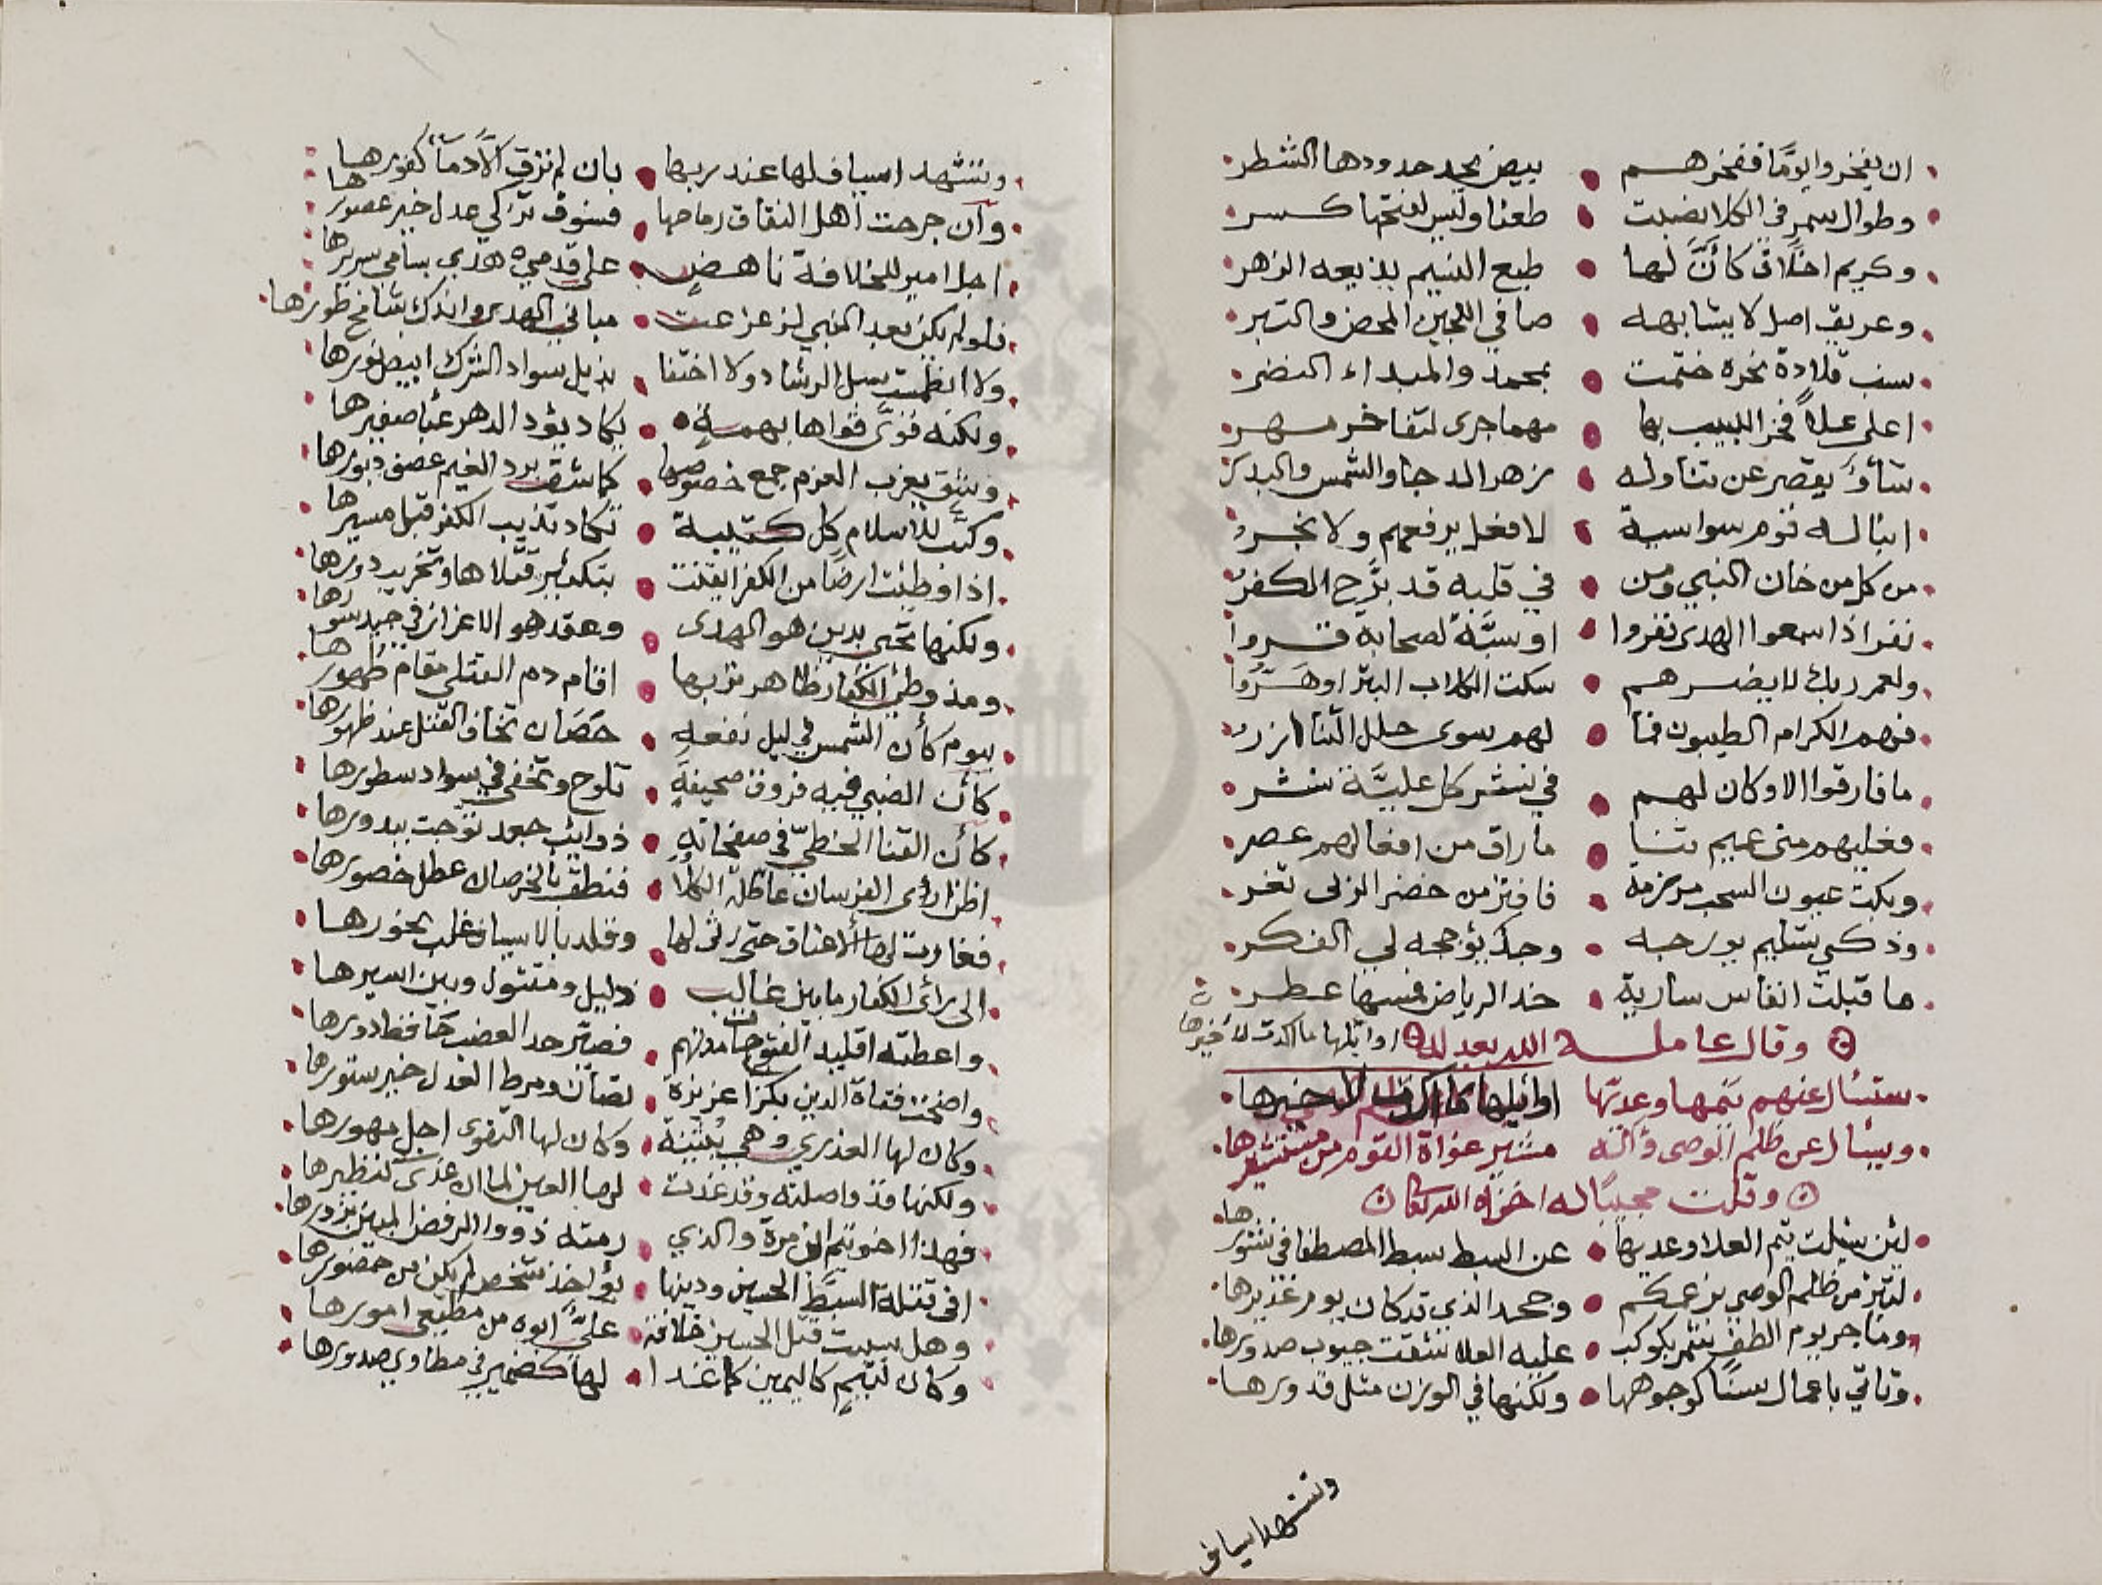 ان يفخروا يومًا ففخرهم بيض بحد حدودها الشطر
وطوال سمر في الكلا نضبت طعنا وليس لفتحها كسر
وكريم اخلاق كأنَّ لها طبع النسيم بذيعه الزهر
وعريق اصل لا يشابهه صافي اللجين المحض والتبر
سنب قلادة نحره ختمت بمحمد والمبداء النضر
اعلى علاً فخر اللبيب بها مهما جرى لتفاخر مهر
شأوٌ يقصر عن تناوله زهر الدجا والشمس والبدر
انباله قوم سواسية لا فعل يرفعهم ولا نجر
من كل من خان النبي ومن في قلبه قد برَّح الكفر
نفر اذا سمعوا الهدى نفروا او سبَّة لصحابة قروا
ولعمر ربك لا يضرهم سكت الكلاب البتر او هَرُّوا
فهم الكرام الطيبون فما لهم سوى حلل الثنا ازر
ما فارقوا الا وكان لهم في نشر كل عليَّة نشر
فعليهم منى عميم ثنا ما راق من افعالهم عصر
وبكت عيون السحب مرزمة فافتر من خضر الربى ثغر
وذكى بتسليم يورجه وجد يؤججه لي الفكر
ما قبلت انفاس سارية خد الرياض فمسها عطر
وقال عامله الله بعدله اوائلها ما اكدت لاخيرها
ستسأل عنهم تيمها وعديها اوائلها ما اكدت لاخيرها
ويسأل عن ظلم الوصى وآله مشير غواة القوم من مستشيرها
وقلت مجيبًا له اخزاه الله تعالى
لئن سئلت تيم العلا وعديها عن السبط سبط المصطفا في نشورها
لتبرز من ظلم الوصي بزعمكم وجحد الذي قد كان يوم غديرها
وما جر يوم الطف شمر بكوكب عليه العلا شقت جيوب صدورها
وتاتي باعمال سنًا كوجوهها ولكنها في الوزن مثل قدورها
وتشهد اسياف
وتشهد اسياف لها عند ربها بان لم تزق الَّا دمآء كفورها
وان جرحت اهل النفاق رماحها فسوف تزكي عدل خير عصورها
اجل امير للخلافة ناهض على قدمي هدي بسامي سريرها
فلو لم يكن بعد النبي لزعزعت مباني الهدى واندك شامخ طورها
ولا انطمست سبل الرشاد ولا اختفا بذيل سواد الشرك ابيض نورها
ولكنه قوَّى قواها بهمة يكاد يؤد الدهر عبأ صغيرها
وشق بغرب العزم جمع خصومها كما شق برد الغيم عصف دبورها
وكتَّب للاسلام كل كتيبة تكاد تذيب الكفر قبل مسيرها
اذا وطئت ارضًا من الكفر ايقنت بتكثير قتلاها وتخريب دورها
ولكنها تحيى بدين هو الهدى وعقد هو الاعزاز في جيد سورها
ومذ وطئ الكفار ظاهر تربها اقام دم القتلى مقام طهورها
بيوم كأن الشمس في ليل نقعه حَصَان تخاف القتل عند ظهورها
كأن الضبي فيه فروق صحيفة تلوح وتخفى في سواد سطورها
كأن القنا الخطيّ في صفحاته ذوائب جعد توجت ببدورها
اظن ارؤى الفرسان عاطلة الكلا فنطق بالخرصان عطل خصورها
فغارت لها الاعناق حتى رثى لها وقلد بالاسياف غلب نحورها
الى ان رأى الكفار ما بين غالب ذليل ومقتول وبين اسيرها
واعطته اقليد الفتوح حماتهم فصير حد العضب
واضحت فتاة الدين بكرًا عزيزة تصان ومرط العدل خير ستورها
وكان لها العذري وهي بثينة وكان لها التقوى اجل مهورها
ولكنها مذ واصلته وقد غدت لها العين لما ان غدى كنظيرها
فهذا اخو تيم ابن مرة والذي رمته ذووا الرفض المبين بزورها
افي قتلة السبط الحسين ودينها يؤاخذ شخص لم يكن من حضورها
وهل سببت قتل الحسين خلافة عليٌّ ابوه من مطيعي امورها
وكان لتيم كاليمين كما غدا لها كضمير في مطاوي صدورها